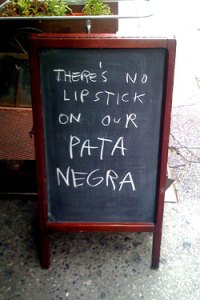 THERE'S NO
LIPSTICK
ON OUR
PATA
NEGRA